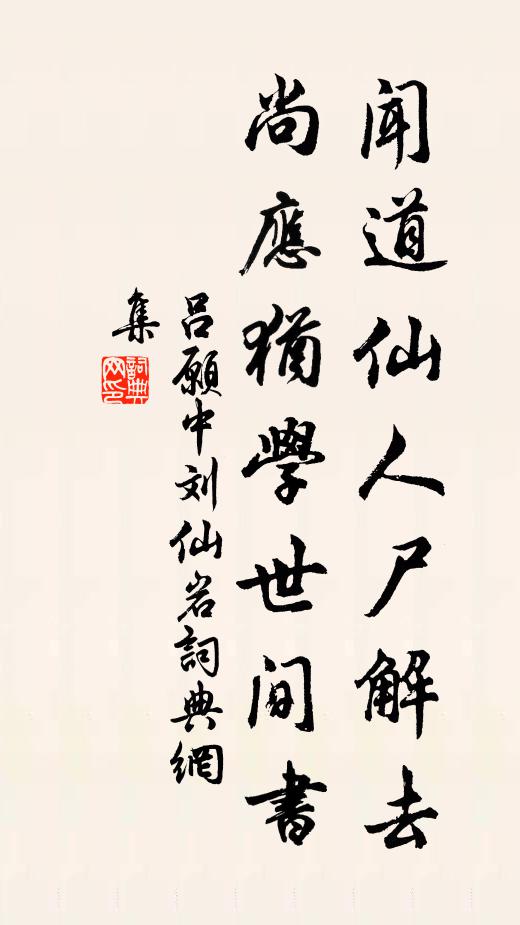 闻道仙人尸解去
尚應猶學世间書
吕願中刘仙岩詞典網
集
詞典网印